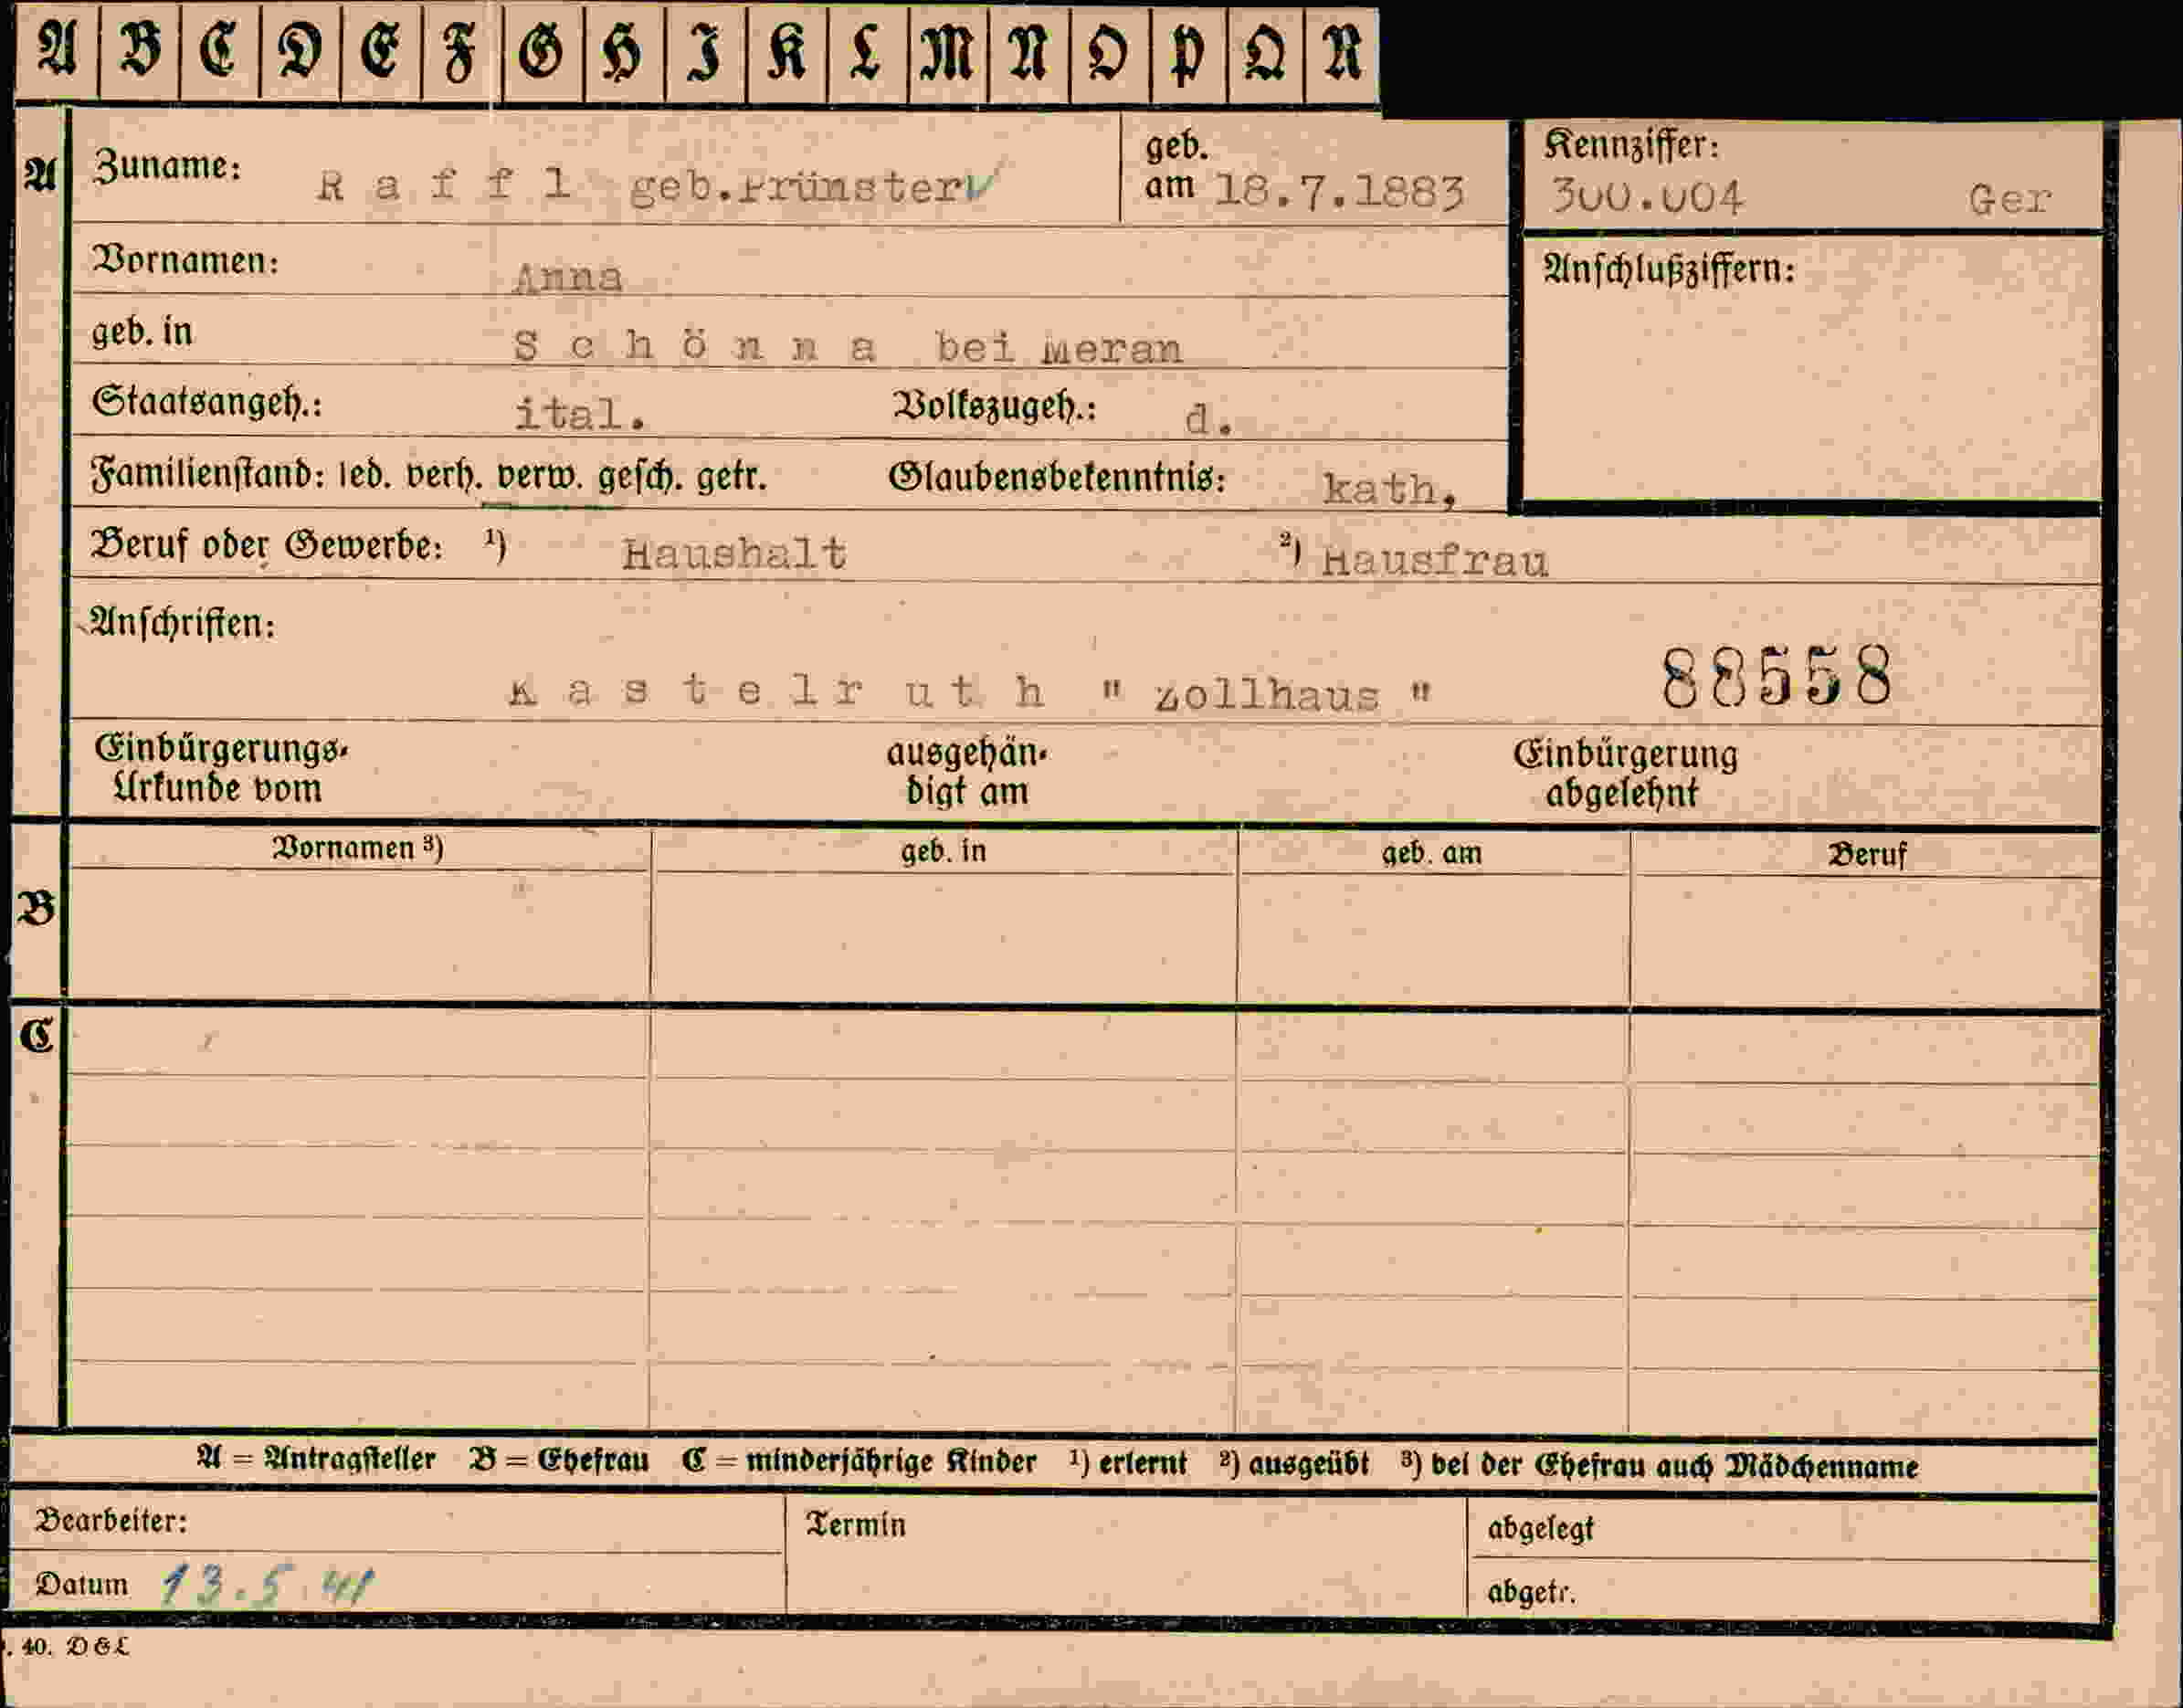 A B C D E F G H I K L M N O P Q R
A Zuname: R a f f l geb.Prünster
geb. am 18.7.1883
Kennziffer: 300.004 Ger
Vornamen: Anna
Anschlußziffern:
geb. in S c h ö n n a bei Meran
Staatsangeh.: ital. Volkszugeh.: d.
Familienstand: led. verh. verw. gesch. getr. Glaubensbekenntnis: kath,
Beruf oder Gewerbe: ¹) Haushalt ²) Hausfrau
Anschriften:
K a s t e l r u t h " Zollhaus " 88558
Einbürgerungs- ausgehän- Einbürgerung
Urkunde vom digt am abgelehnt
Vornamen ³) geb. in geb. am Beruf
B
C
A = Antragsteller B = Ehefrau C = minderjährige Kinder ¹) erlernt ²) ausgeübt ³) bei der Ehefrau auch Mädchenname
Bearbeiter: Termin abgelegt
Datum 13.5.41 abgetr.
. 40. DGL